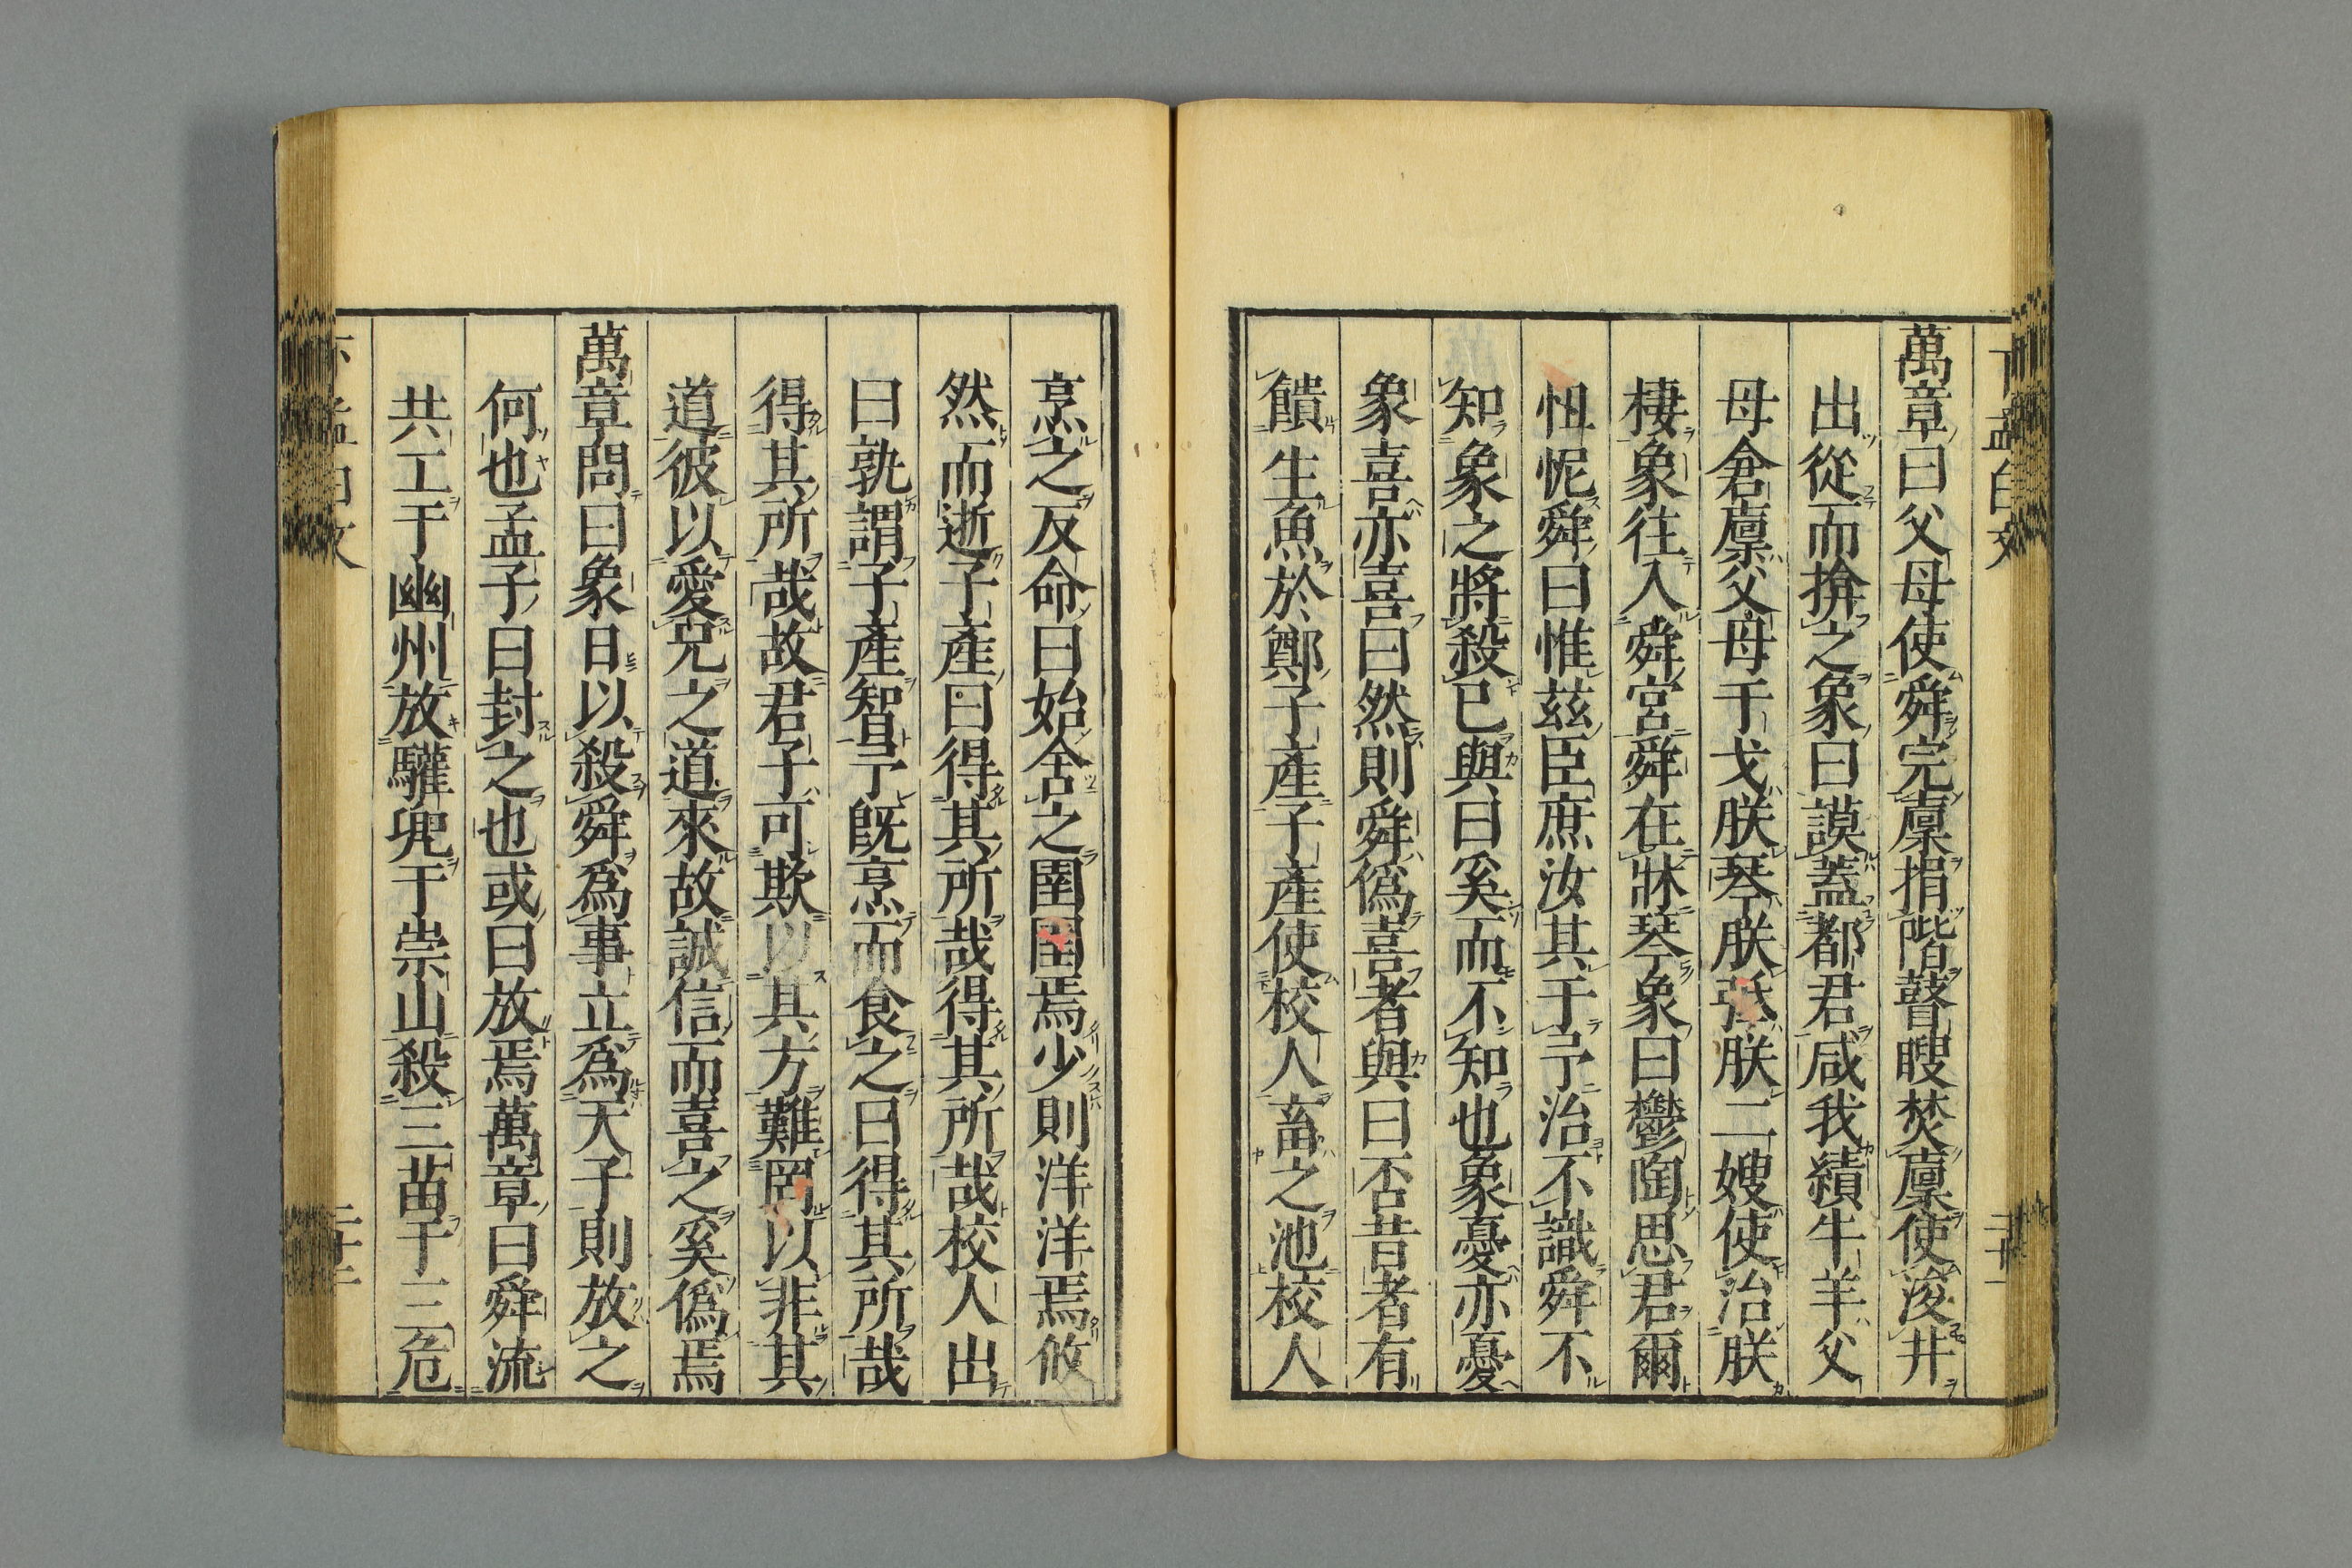 萬章曰父母使舜完廩捐階瞽瞍焚廩使浚井
出從而揜之象曰謨蓋都君咸我績牛羊父
母倉廩父母干戈朕琴朕弤朕二嫂使治朕
棲象往入舜宮舜在牀琴象曰鬱陶思君爾
忸怩舜曰惟茲臣庶汝其于予治不識舜不
知象之將殺已與曰奚而不知也象憂亦憂
象喜亦喜曰然則舜僞喜者與曰否昔者有
饋生魚於鄭子產子產使校人畜之池校人
烹之反命曰始舍之圉圉焉少則洋洋焉攸
然而逝子產曰得其所哉得其所哉校人出
曰孰謂子產智予既烹而食之曰得其所哉
得其所哉故君子可欺以其方難罔以非其
道彼以愛兄之道來故誠信而喜之奚僞焉
萬章問曰象日以殺舜爲事立爲天子則放之
何也孟子曰封之也或曰放焉萬章曰舜流
共工于幽州放驩兜于崇山殺三苗于三危